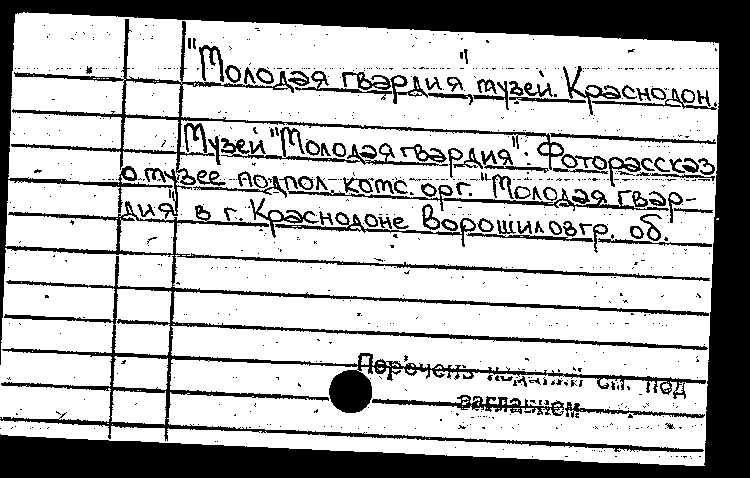 "Молодая гвардия", музей. Краснодон.
Музей "Молодая гвардия": Фоторассказ
о музее подпол. комс. орг. "Молодая гвар-
дия" в г. Краснодоне Ворошиловгр. об.
Перечень изданий см. под
заглавием